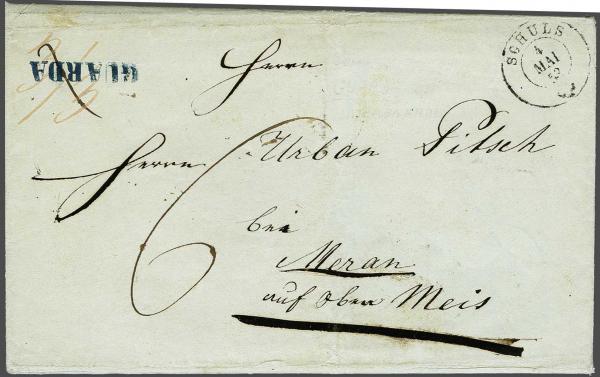 GUARDA
SCHULS
4
MAI
Herrn
Herrn Urban Pitsch
6
bei
Meran
auf Ober Meis